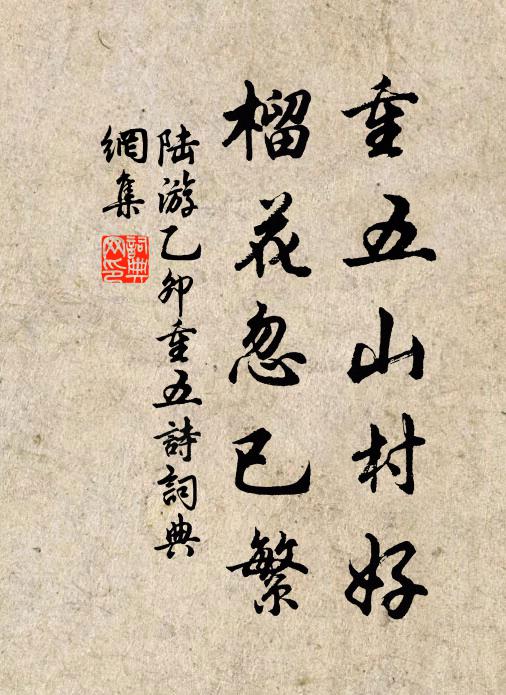 重五山村好
榴花忽已繁
陆游乙卯重五詩詞典
網集
詞典
网印